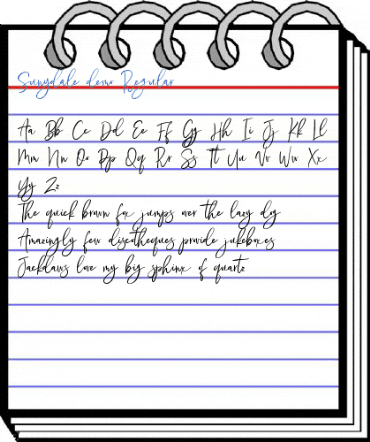 Sunydale demo Regular
Aa Bb Cc Dd Ee Ff Gg Hh Ii Jj Kk Ll
Mm Nn Oo Pp Qq Rr Ss Tt Uu Vv Ww Xx
Yy Zz
The quick brown fox jumps over the lazy dog
Amazingly few discotheques provide jukeboxes
Jackdaws love my big sphinx of quartz